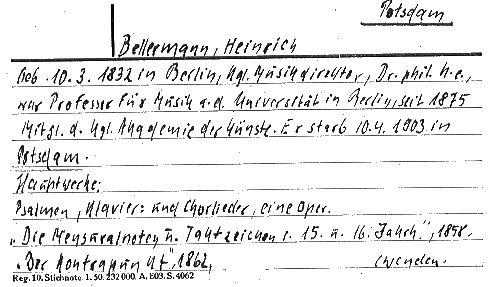 Potsdam
Bellermann, Heinrich
Geb. 10.3. 1832 in Berlin, Kgl. Musikdirektor, Dr. phil. h.c.,
war Professor für Musik a.d. Universität in Berlin, seit 1875
Mitgl. d. Kgl. Akademie der Künste. Er starb 10.4. 1903 in
Potsdam.
Hauptwerke:
Psalmen, Klavier- und Chorlieder, eine Oper.
„Die Mensuralnoten u. Taktzeichen i. 15. u. 16. Jahrh.", 1858.
„Der Kontrapunkt", 1862,
(wenden.
Reg. 10. Stichnote 1. 50. 232 000. A. 803. S. 4062